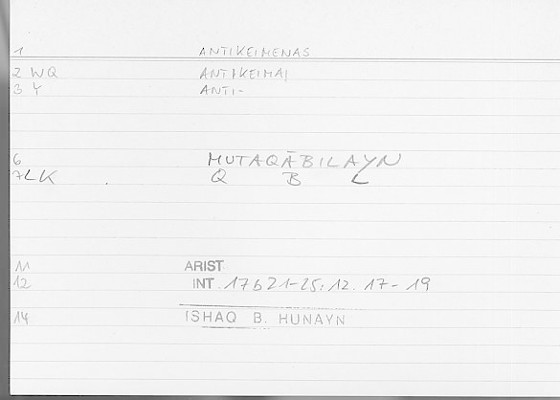 1 ANTIKEIMENAS
2 WQ ANTIKEIMAI
3 Y ANTI-
6 MUTAQĀBILAYN
7LK Q B L
11 ARIST
12 INT. 17b21-25: 12. 17-19
14 ISHAQ B. HUNAYN